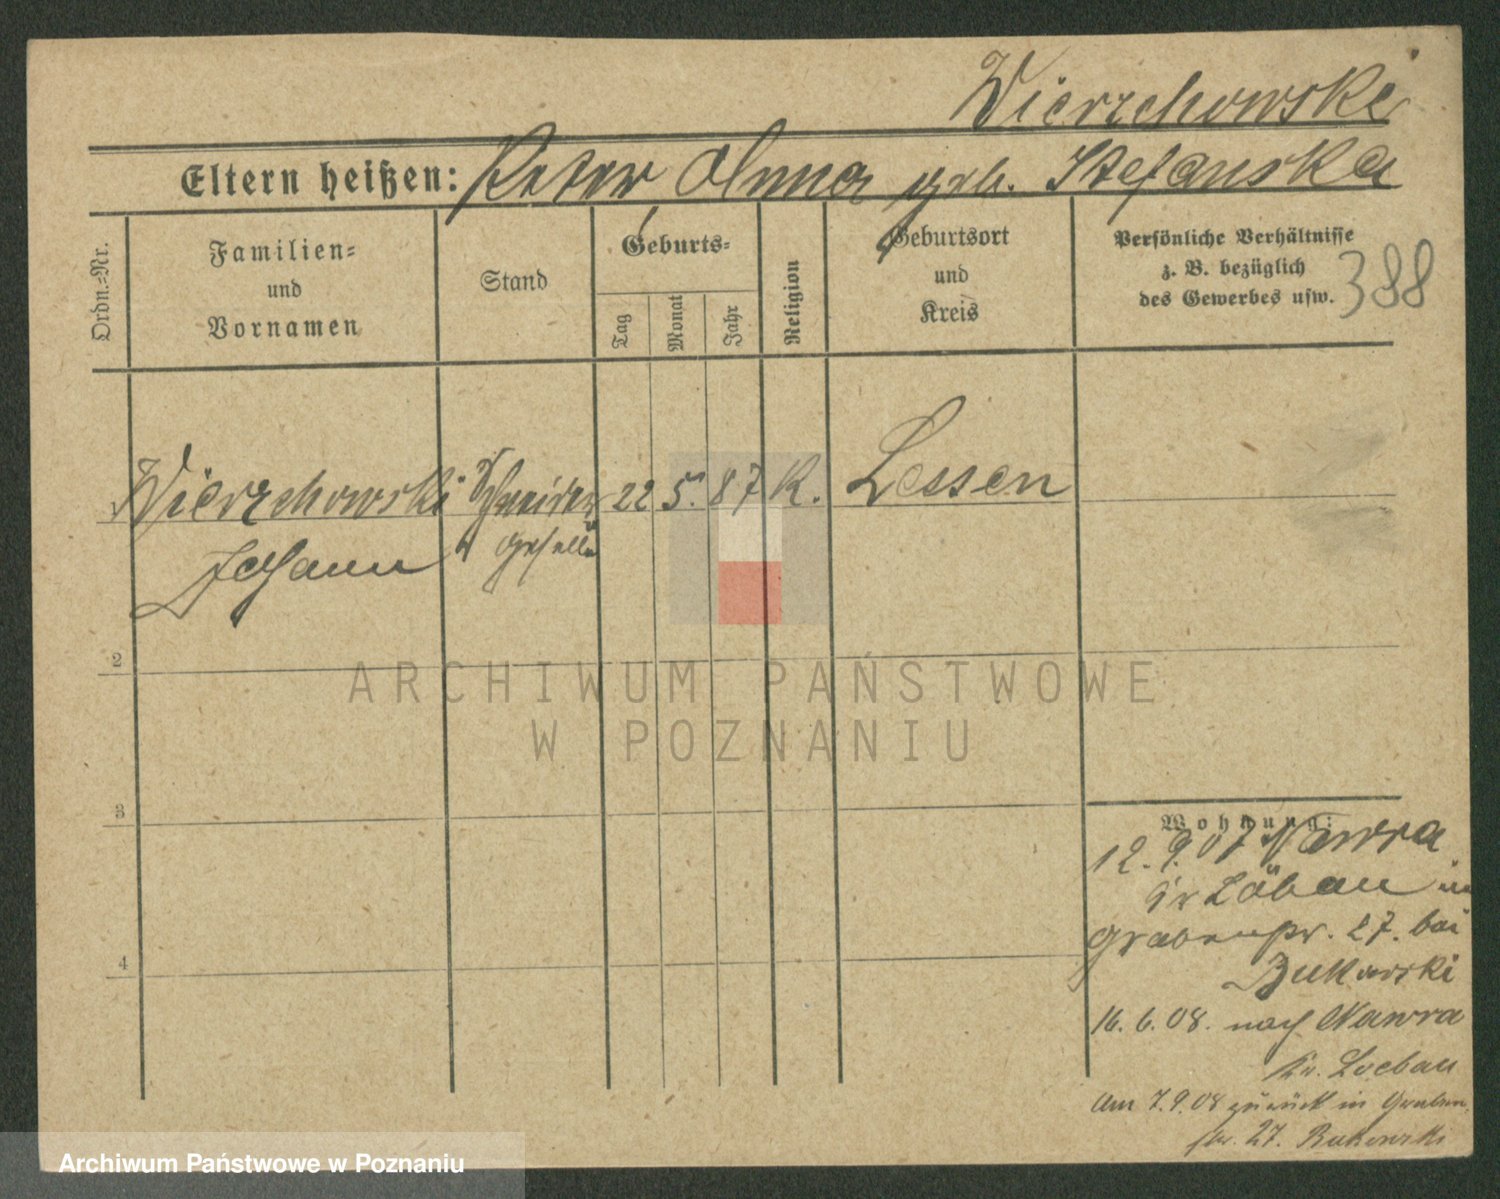 Wierzchowski
Eltern heißen: Peter Anna geb. Stefanska
Ordn.-Nr.
Familien-
und
Vornamen
Stand
Geburts-
Tag
Monat
Jahr
Religion
Geburtsort
und
Kreis
Persönliche Verhältnisse
z. B. bezüglich
des Gewerbes usw.
388
1 Wierzchowski Schneider 22 5. 87 K. Lessen
Johann geselle
2
3
4
Wohnung:
12. 9. 07 Nawra
Kr Löbau in
Grabenstr. 27. bei
Bukowski
16. 6. 08. nach Nawra
Kr. Loebau
Am 7.9.08 zurück in Graben
str. 27. Bukowski
ARCHIWUM PAŃSTWOWE
W POZNANIU
Archiwum Państwowe w Poznaniu